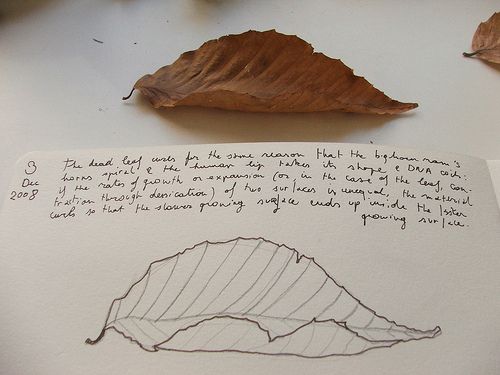 3 The dead leaf curls for the same reason that the bighorn ram's
Dec horns spiral & the human lip takes its shape & DNA coils:
2008 if the rates of growth or expansion (or in the case of the leaf, con-
traction through dessication) of two surfaces is unequal, the material
curls so that the slower growing surface ends up inside the faster
growing surface.